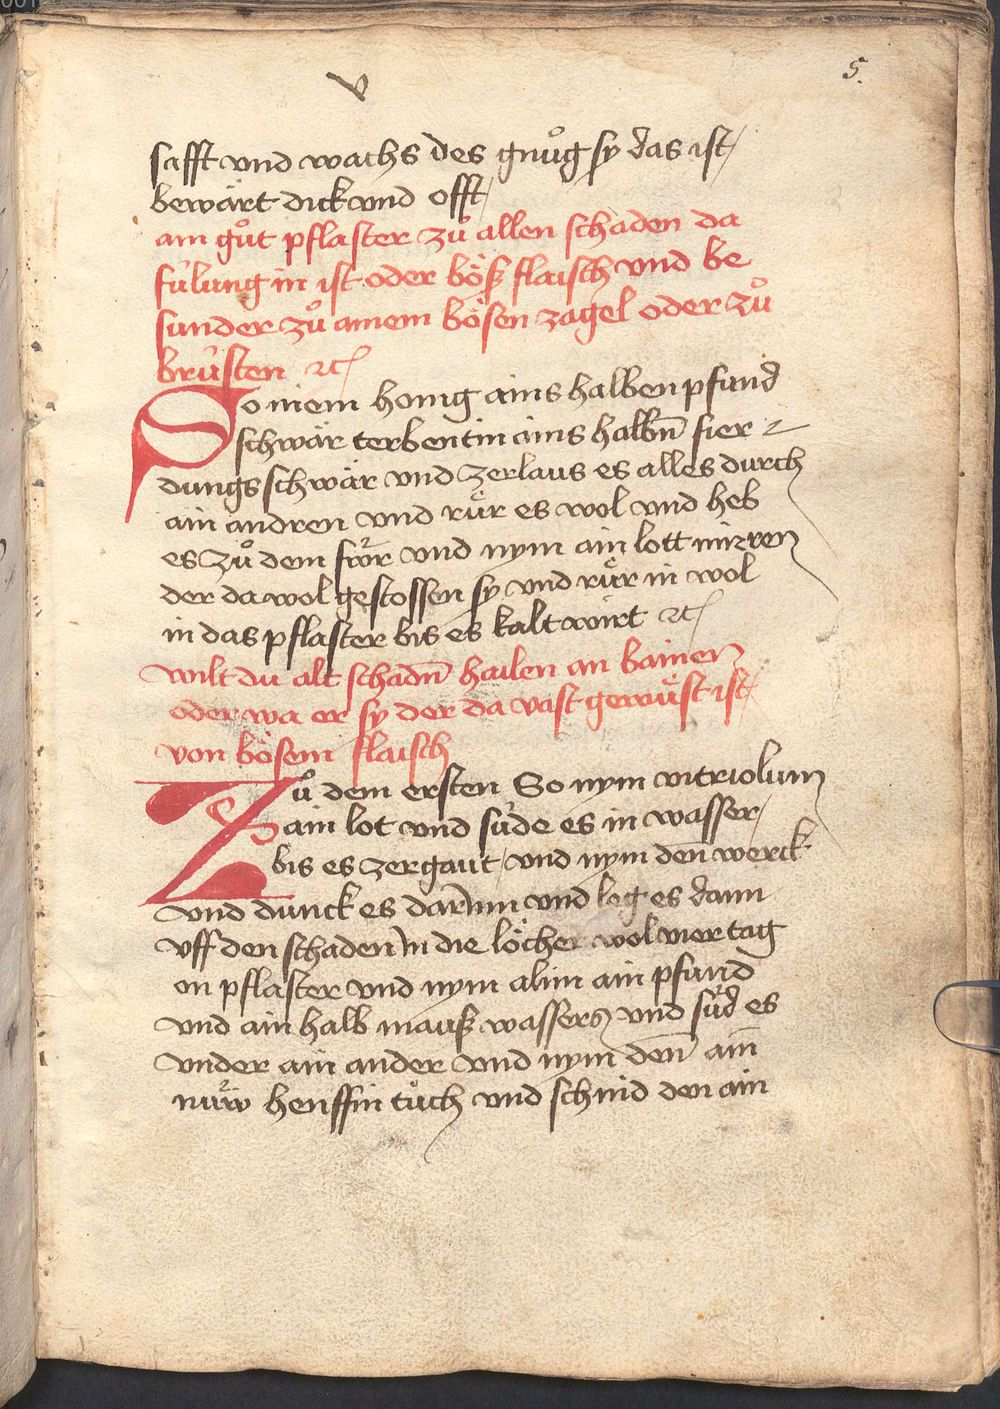 v
5.
safft vnd wachs des gnůg sy das ist
bewärt dick vnd offt
ain gůt pflaster zů allen schaden da
fúlung in ist oder böß flaisch vnd be
sunder zů ainem bösen zagel oder zů
brústen ⁊c
So niem honig ains halben pfund
schwär terbentin ains halbn̄ fier
dungs schwär vnd zerlaus es alles durch
ain andren vnd růr es wol vnd heb
es zů dem fwr vnd nym ain lott mirren
der da wol gestossen sy vnd růr in wol
in das pflaster bis es kalt wirt ⁊c
wilt du alt schadn̄ hailen an bainen
oder wa er sy der da vast gewůst ist
von bösem flaisch
Zů dem ersten So nym vitriolum
ain lot vnd súde es in wasser
bis es zergaut vnd nym den̄ werck
vnd dunck es darinn vnd leg es dann
vff den schaden in die löcher wol vier tag
on pflaster vnd nym alun ain pfund
vnd ain halb mauß wassers vnd súd es
vnder ain ander vnd nym den̄ ain
nüw henffin tůch vnd schnid den ain